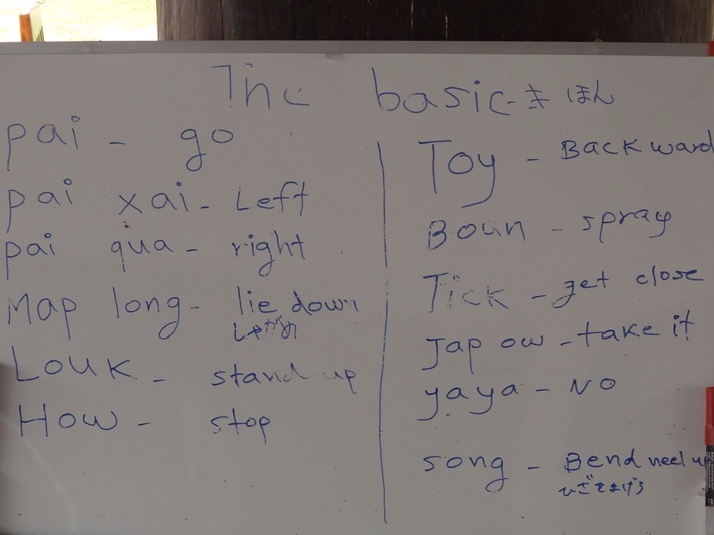 The basic - きほん
pai - go
pai xai - Left
pai qua - right
Map long - lie down
しゃがめ
Louk - stand up
How - stop
Toy - Back ward
Boun - spray
Tick - get close
Jap ow - take it
yaya - NO
song - Bend neel up
ひざをまげろ